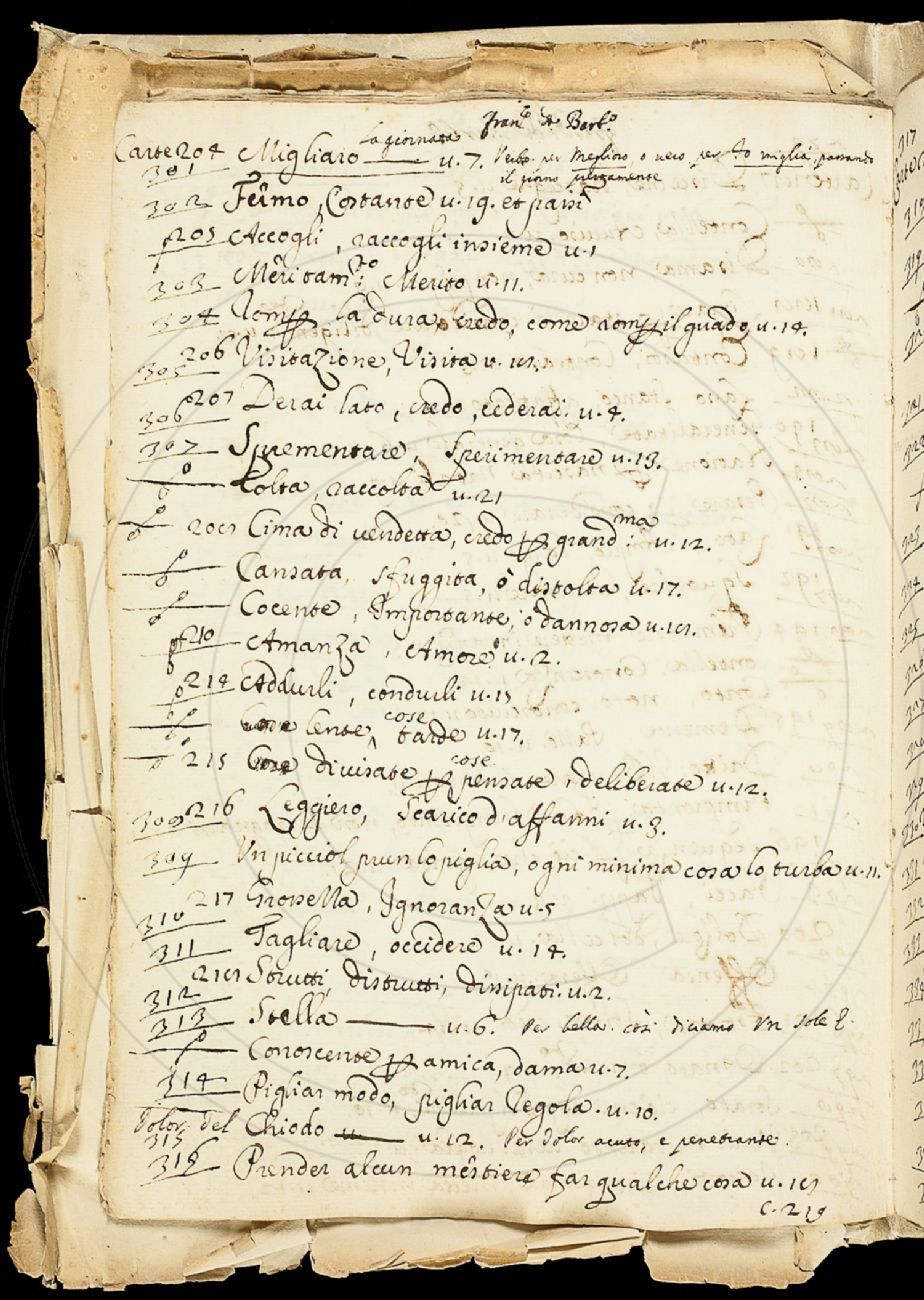 Franc.o da Barb.o
Carte 204 Migliaro la giornata u. 7. Verbo per Megliora, o vero per fo miglia, passando
301 il giorno
302 Fermo, Costante u. 19. et passi
205 Accogli, raccogli insieme u. 1
303 Meritam.to: Merito u. 11.
304 Romp la dura, credo, come romp il guado u. 14.
206 Visitazione, Visita u. 18.
305
207 Derai lato, credo, cederai. u. 4.
306
307 Sprementare, Sperimentare u. 13.
Colta, raccolta u. 21
208 Cima di vendetta, credo p grand:ma u. 12.
Cansata, sfuggita, ò distolta u. 17.
Cocente, Importante, ò dannosa u. 18.
210 Amanza, Amore u. 2.
214 Addurli, condurli u. 15
lente, cose tarde u. 17.
215 divisate p cose pensate, deliberate u. 12.
308 216 Leggiero, Scarico d'affanni u. 3.
309 Un picciol prun lo piglia, ogni minima cosa lo turba u. 11.
217 Grossella, Ignoranza u. 5
310
311 Tagliare, occidere u. 14.
218 Strutti, distrutti, dissipati. u. 2.
312
313 Stella u. 6. Per bella. così diciamo Un sole &.
Conoscente p amica, dama u. 7.
314 Pigliar modo, pigliar regola. u. 10.
Dolor del Chiodo u. 12. Per dolor acuto, e penetrante.
315
316 Prender alcun mestiere far qualche cosa u. 18
c. 219